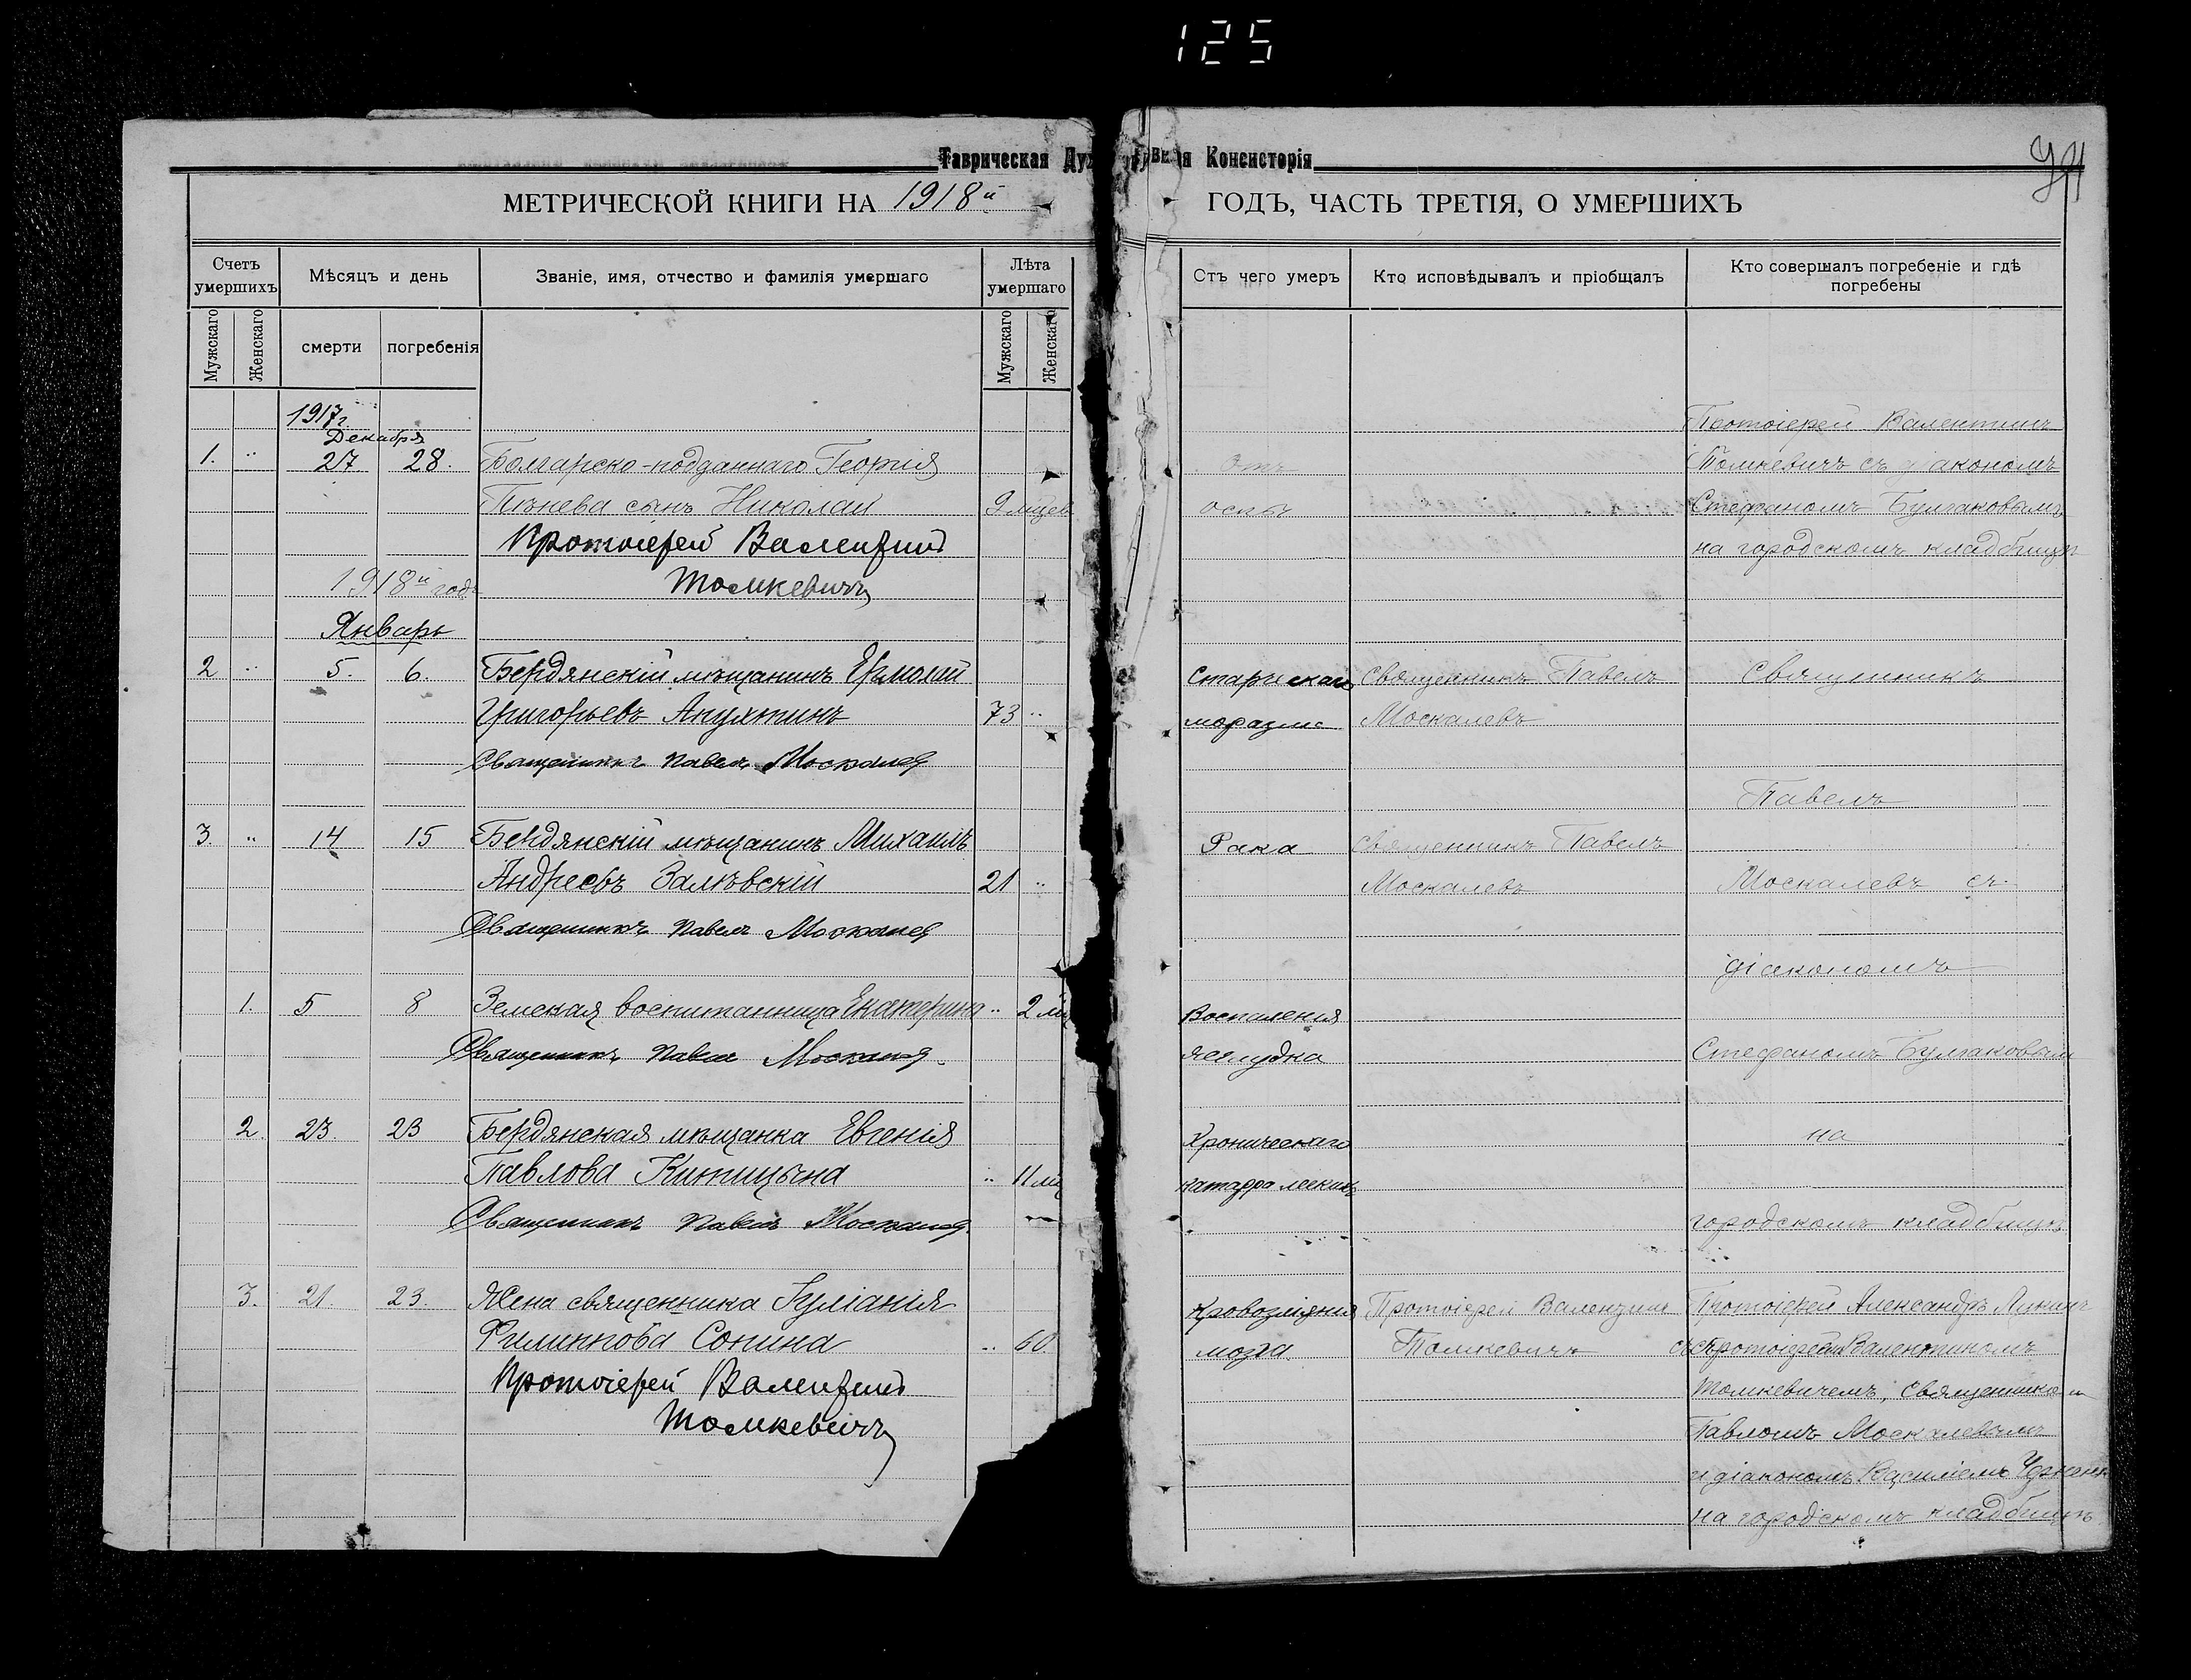 125
Таврическая Духовная Консисторія
МЕТРИЧЕСКОЙ КНИГИ НА 1918й
ГОДЪ, ЧАСТЬ ТРЕТІЯ, О УМЕРШИХЪ
Счетъ умершихъ
Мѣсяцъ и день
Званіе, имя, отчество и фамилія умершаго
Лѣта умершаго
Мужскаго
Женскаго
смерти
погребенія
Мужскаго
Женскаго
Отъ чего умеръ
Кто исповѣдывалъ и пріобщалъ
Кто совершалъ погребеніе и гдѣ
погребены
1917г
Декабря
1. " 27 28. Болгарско-подданнаго Георгія
Пѣнева сынъ Николай 9 мцев
Протоіерей Валентинъ
Томкевичъ
Отъ
оспы
Протоіерей Валентинъ
Томкевичъ съ діакономъ
Стефаномъ Булгаковымъ
на городскомъ кладбищѣ
1918й годъ
Январь
2 " 5. 6. Бердянскій мѣщанинъ Ермолай
Григорьевъ 73 "
Священникъ Павелъ Москалев
Старческаго
маразма
Священникъ Павелъ
Москалевъ
Священникъ
Павелъ
3. " 14 15 Бердянскій мѣщанинъ Михаилъ
Андреевъ Залѣвскій 21 "
Священникъ Павелъ Москалев
Рака
Священникъ Павелъ
Москалевъ
Москалевъ съ
діакономъ
1. 5 8 Земская воспитанница Екатерина " 2 м
Священникъ Павелъ Москалев
Воспаленія
желудка
Стефаномъ Булгаковым
2. 23. 23 Бердянская мѣщанка Евгенія
Павлова Китицына " 11 мц
Священникъ Павелъ Москалев
Хроническаго
катарра
на
городскомъ кладбищѣ
3. 21. 23. Жена священника Іуліанія
Филиппова Сонина " 60
Протоіерей Валентинъ
Томкевичъ
Кровозліянія
мозга.
Протоіерей Валентинъ
Томкевичъ
Протоіерей Александръ
протоіерей Валентиномъ
Томкевичемъ, Священнико м
Павломъ Москалевымъ
и діакономъ Василіемъ
на городскомъ кладбищѣ